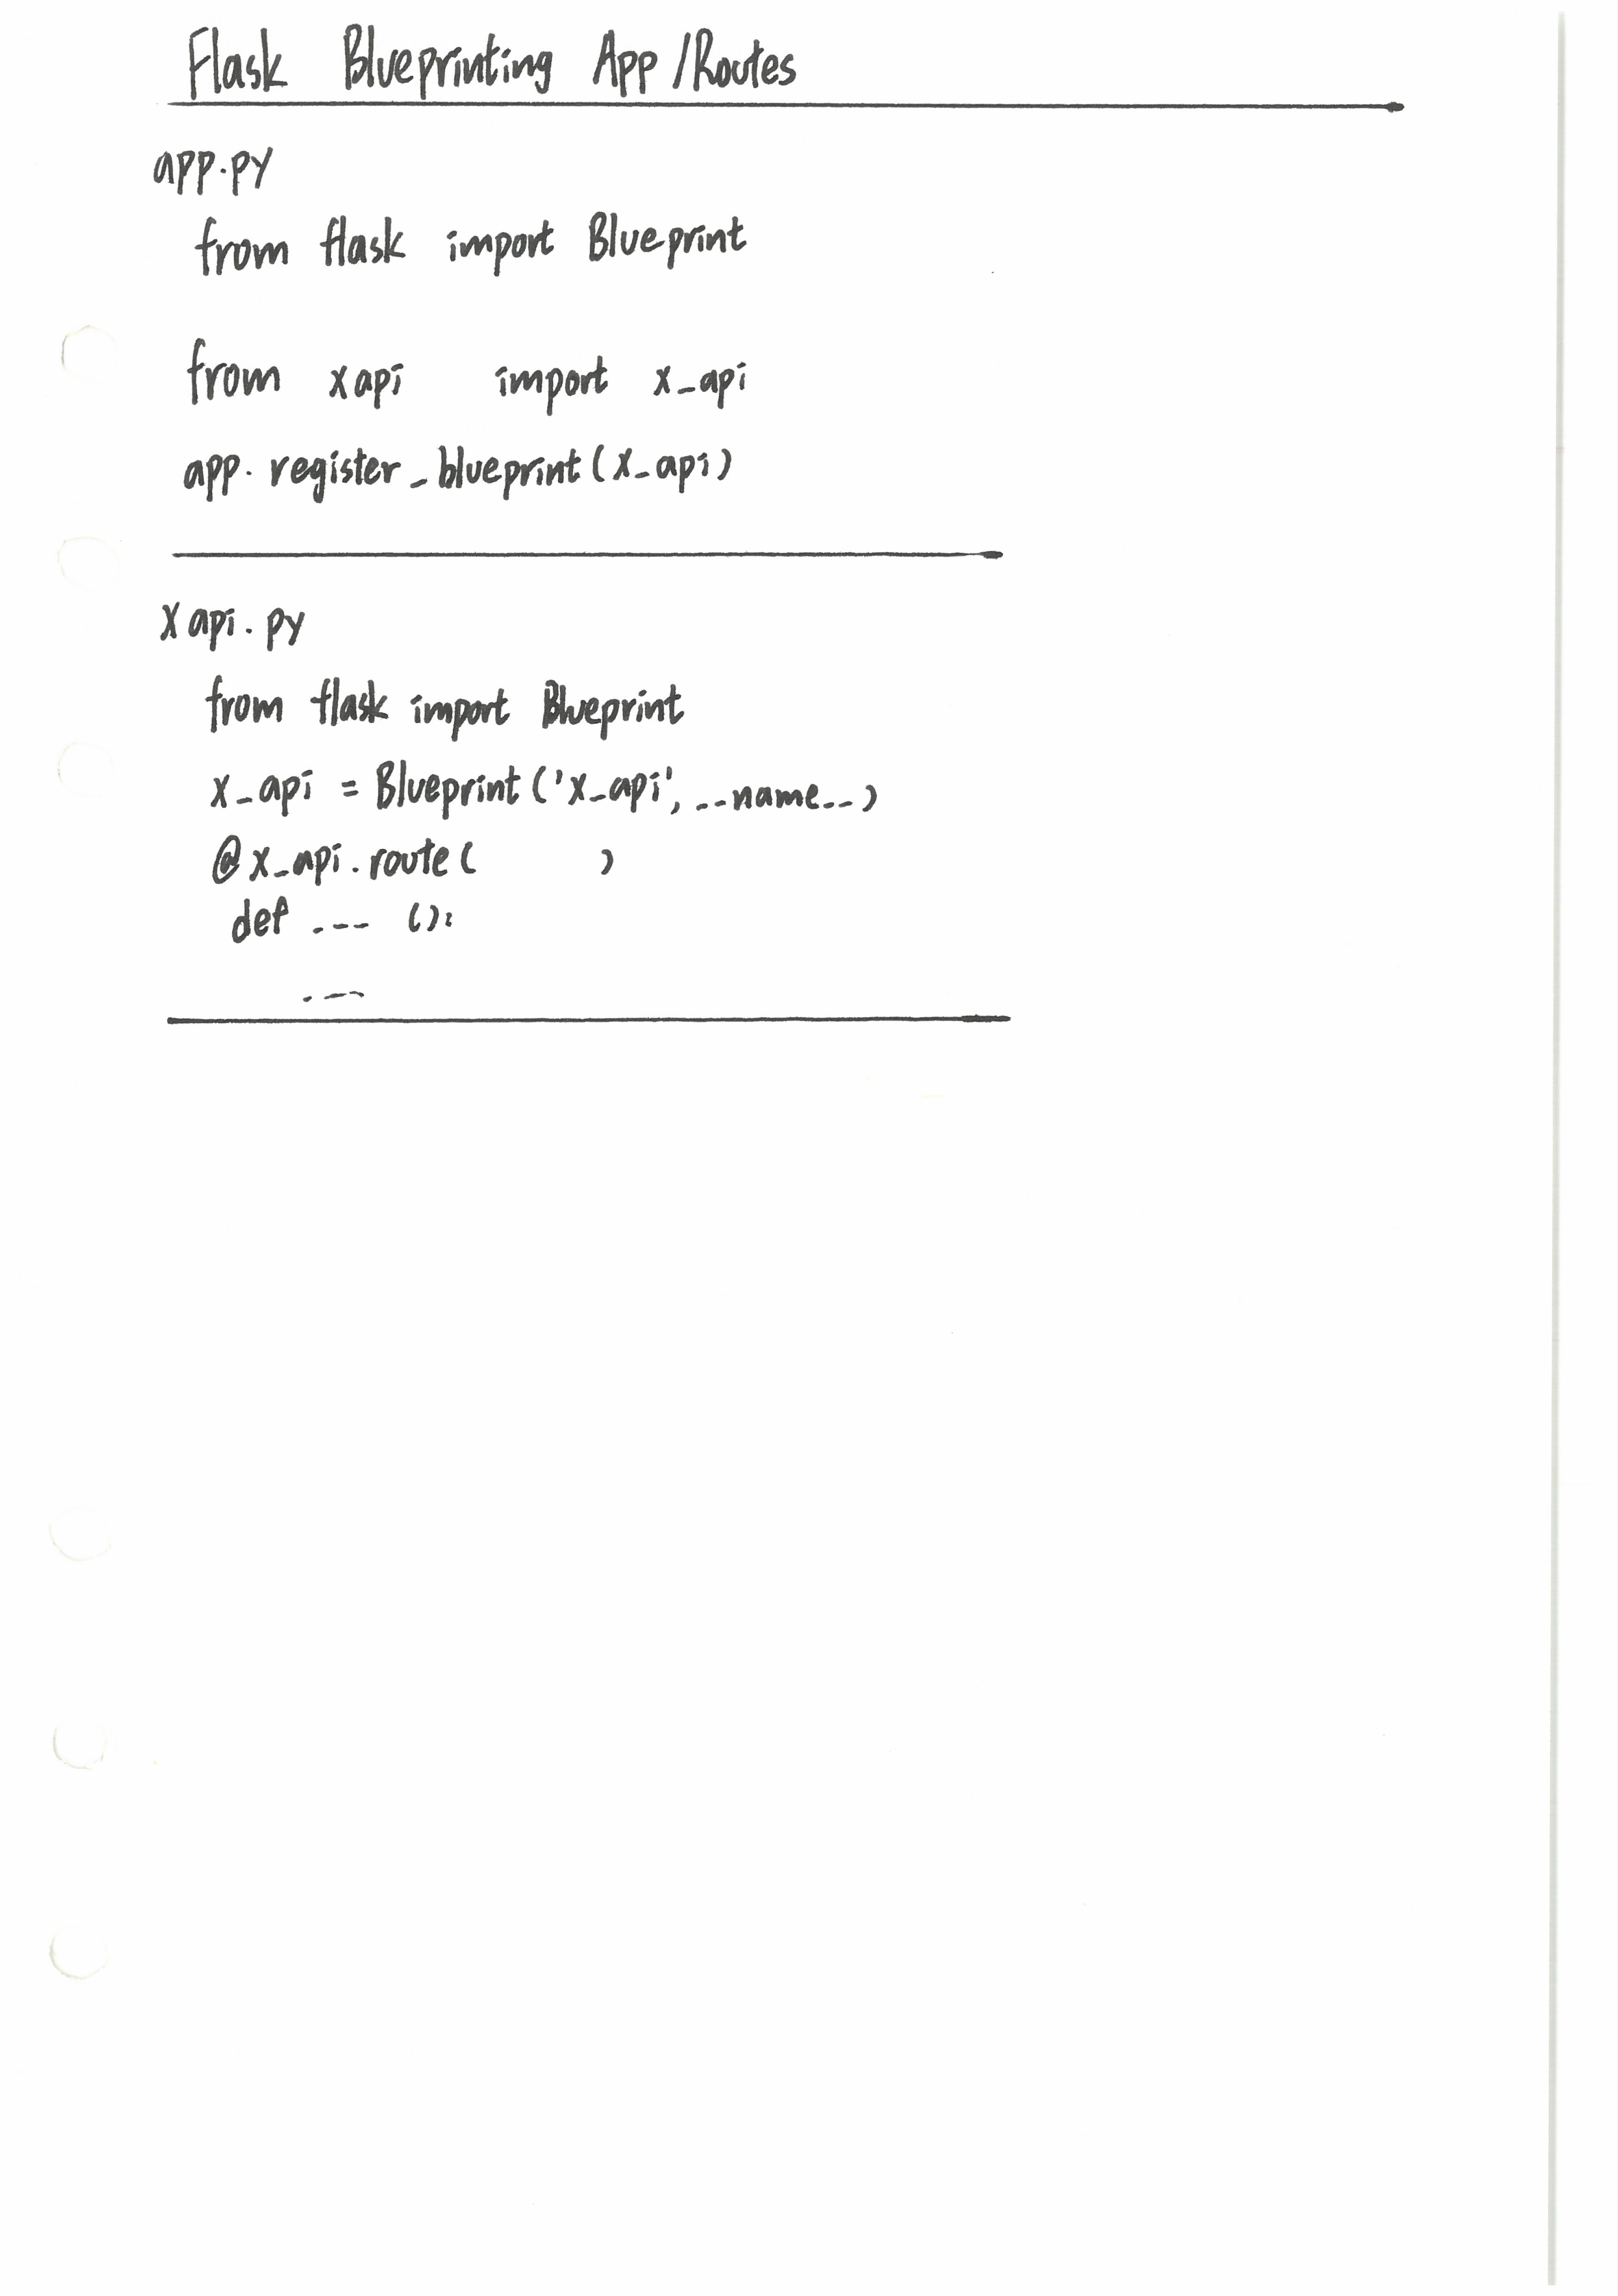 Flask Blueprinting App/Routes
app.py
from flask import Blueprint
from xapi import x_api
app.register_blueprint(x_api)
xapi.py
from flask import Blueprint
x_api = Blueprint('x_api', __name__)
@x_api.route( )
def ---- ():
----